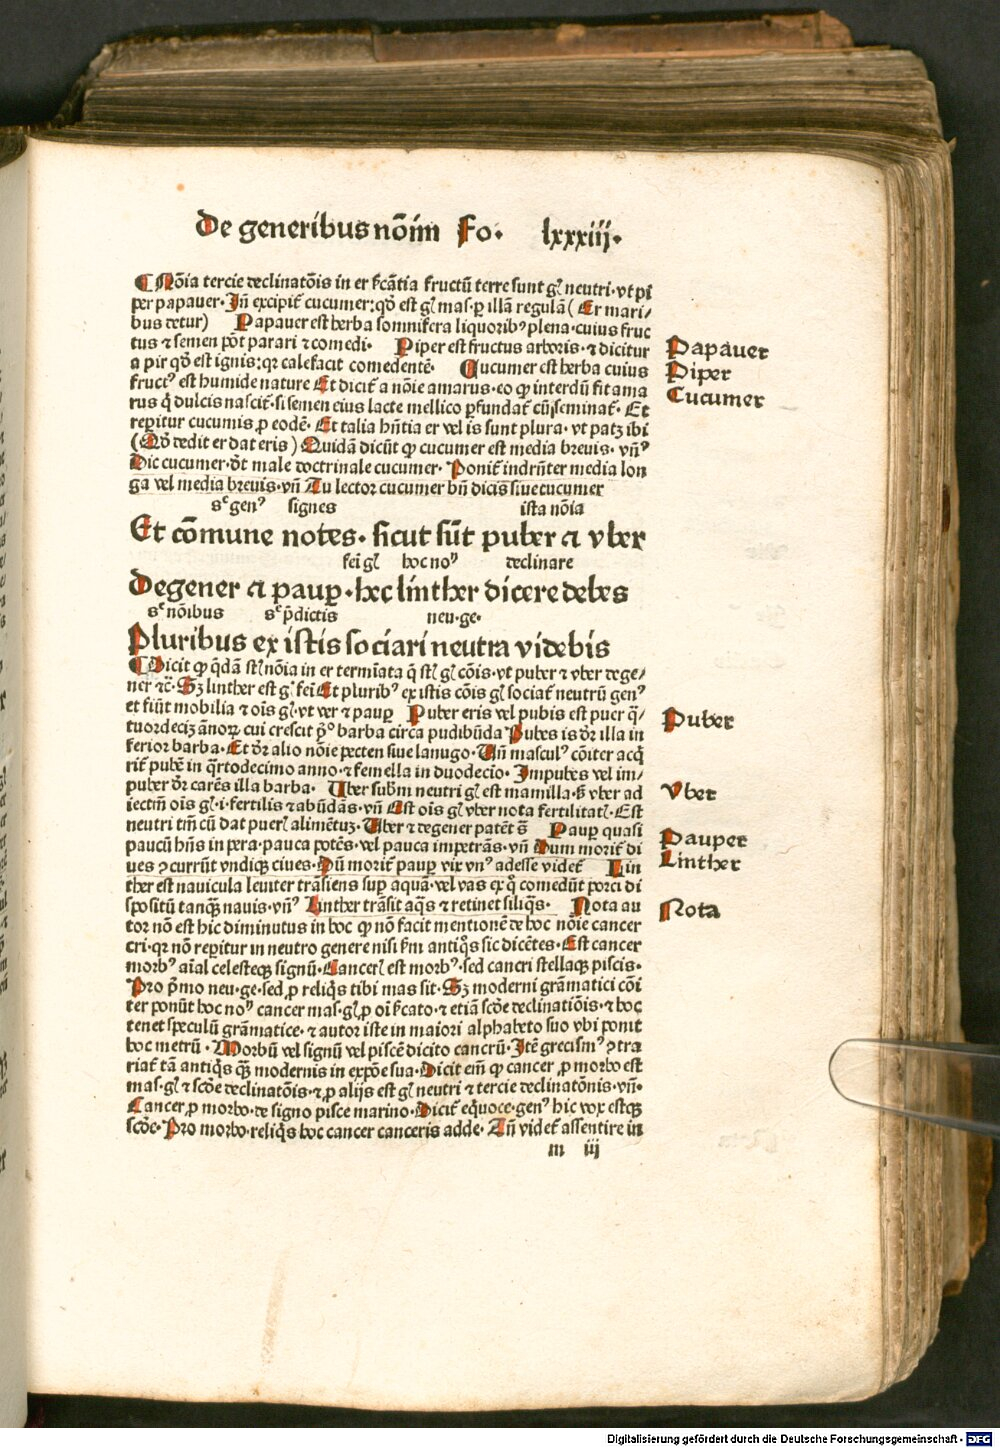 De generibus noīm Fo. lxxxiij.
¶ Nōia tercie declinatōis in er ſicātia fructū terre sunt gl neutri. vt pi
per papauer. Jn̄ excipit̄ cucumer: qd̄ est gl mas. ꝑ illā regulā (Er mari/
bus detur) Papauer est herba somnifera liquoribꝰ plena. cuius fruc
tus ⁊ semen pōt parari ⁊ comedi. Piper est fructus arboris. ⁊ dicitur
a pir qd̄ est ignis: qꝛ calefacit comedentē. Cucumer est herba cuius
fructꝰ est humide nature Et dicit̄ a nōie amarus. eo ꝙ interdū fit ama
rus q̄ dulcis nascit̄. si semen eius lacte mellico ꝑfundat̄ cū seminat̄. Et
reꝑitur cucumis ꝓ eodē. Et talia hn̄tia er vel is sunt plura. vt patꝫ ibi
(Qd̄ dedit er dat eris) Quidā dicūt ꝙ cucumer est media breuis. vn̄ꝰ
Dic cucumer. dt̄ male doctrinale cucumer. Ponit̄ indrn̄ter media lon
ga vel media breuis. vn̄ Tu lector cucumer bn̄ dicis siue cucumer
sꝫ genꝰ signes ista nōia
Et cōmune notes. sicut sūt puber ⁊ vber
fei gl hoc noꝰ declinare
Degener ⁊ pauꝑ. hec linther dicere debes
sꝫ nōibus sꝫ p̄dictis neu. ge.
Pluribus ex istis sociari neutra videbis
¶ Dicit ꝙ qdā st̄ nōia in er termīata q̄ st̄ gl cōis. vt puber ⁊ vber dege/
ner ⁊c̄. Sꝫ linther est gl fei Et pluribꝰ ex istis cōis gl sociat̄ neutrū genꝰ
et fiūt mobilia ⁊ ois gl. vt ver ⁊ pauꝑ Puber eris vel pubis est puer q̄/
tuordecīꝫ ānoꝝ cui crescit pͦ barba circa pudibūda Pubes is dr̄ illa in
ferior barba. Et dr̄ alio nōie pecten siue lanugo. Un̄ masculꝰ cōiter acq̄
rit̄ pubē in q̄rtodecimo anno. ⁊ femella in duodecīo. Impubes vel im/
puber dr̄ carēs illa barba. Uber subm̄ neutri gl est mamilla. ß vber ad
iectiū ois gl. i. fertilis ⁊ abūdās. vn̄ Est ois gl vber nota fertilitatl. Est
neutri tm̄ cū dat puerl alimētuꝫ. Uber ⁊ degener patēt s̄ Pauꝑ quasi
paucū hn̄s in pera. pauca potēs. vel pauca impetrās. vn̄ Dum morit̄ di
ues ꝯcurrūt vndiqꝫ ciues. Dū morit̄ pauꝑ vix vnꝰ adesse videt̄ Lin
ther est nauicula leuiter trāsiens suꝑ aquā. vel vas ex q̄ comedūt porci di
spositū tanqꝫ nauis. vn̄ꝰ Linther trāsit aq̄s ⁊ retinet siliq̄s. Nota au
tor nō est hic diminutus in hoc ꝙ nō facit mentionē de hoc nōie cancer
cri. qꝛ nō reꝑitur in neutro genere nisi ſm antiq̄s sic dicētes. Est cancer
morbꝰ aīal celesteqꝫ signū. Cancerl est morbꝰ. sed cancri stellaqꝫ piscis.
Pro p̄mo neu. ge. sed ꝓ reliq̄s tibi mas sit. Sꝫ moderni grāmatici cōi
ter ponūt hoc noꝰ cancer mas. gl. ꝓ oī ſicato. ⁊ etiā scd̄e declinatiōis. ⁊ hoc
tenet speculū grāmatice. ⁊ autor iste in maiori alphabeto suo vbi ponit
hoc metrū. Morbū vel signū vel piscē dicito cancrū. Itē grecismꝰ ꝯtra
riat̄ tā antiq̄s qꝫ modernis in expōe sua. Dicit em̄ ꝙ cancer ꝓ morbo est
mas. gl ⁊ scd̄e declinatōis. ⁊ ꝓ alijs est gl neutri ⁊ tercie declinatōnis. vn̄.
Cancer ꝓ morbo. de signo pisce marino. Dicit̄ eq̄uoce. genꝰ hic vox estqꝫ
scd̄e. Pro morbo. reliq̄s hoc cancer canceris adde. An̄ videt̄ assentire in
m iij
Papauer
Piper
Cucumer
Puber
Vber
Pauper
Linther
Nota
Digitalisierung gefördert durch die Deutsche Forschungsgemeinschaft - DFG